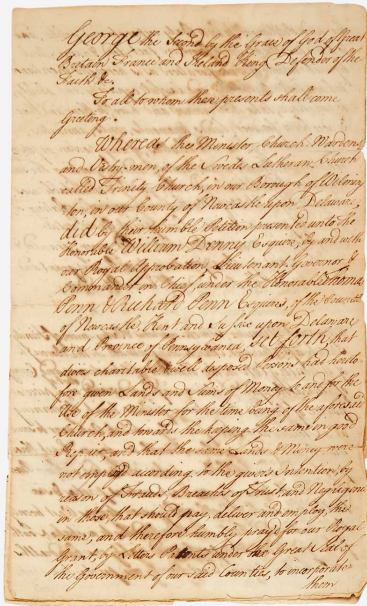 George the Second by the Grace of God of Great
Britain France and Ireland King Defender of the
Faith &c.
To all to whom these presents shall come
Greeting.
Whereas the Minister Church Wardens
and Vestry men, of the Swedes Lutheran Church
called Trinity Church, in our Borough of Wilming
ton, in our County of Newcastle upon Delaware,
did by their humble Petition presented unto the
Honorable William Denny Esquire, by and with
our Royal Approbation, Lieutenant Governor &
Commander in Chief under the Honorable Thomas
Penn & Richard Penn Esquires, of the Counties
of Newcastle, Kent and Sussex upon Delaware
and Province of Pennsylvania, Set forth, that
divers charitable & well disposed Persons had hereto
fore given Lands and Sums of Money to and for the
Use of the Minister for the time being of the aforesaid
Church, and towards the keeping the same in good
Repair, and that the same Lands & Money were
not applied according to the givers Intention, by
reason of Frauds, Breaches of Trust and Negligence
in those, that should pay, deliver and employ, the
same, and therefore humbly prayed for our Royal
Grant, by Letters Patents under the Great Seal of
the Government of our said Counties, to incorporate
them